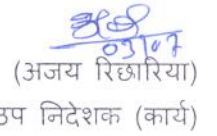 03/07
(अजय रिछारिया)
उप निदेशक (कार्य)